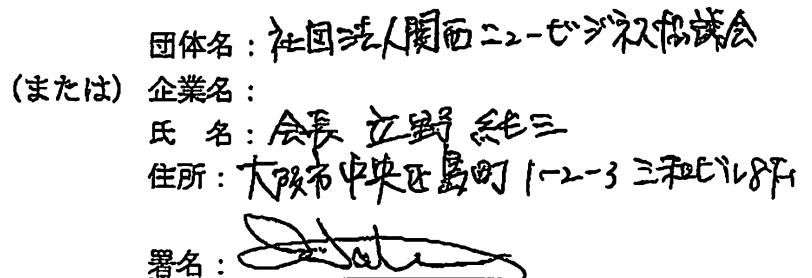 団体名:社団法人関西ニュービジネス協議会
(または) 企業名:
氏 名:会長 立野 純三
住所:大阪市中央区島町 1-2-3 三和ビル8F
署名: